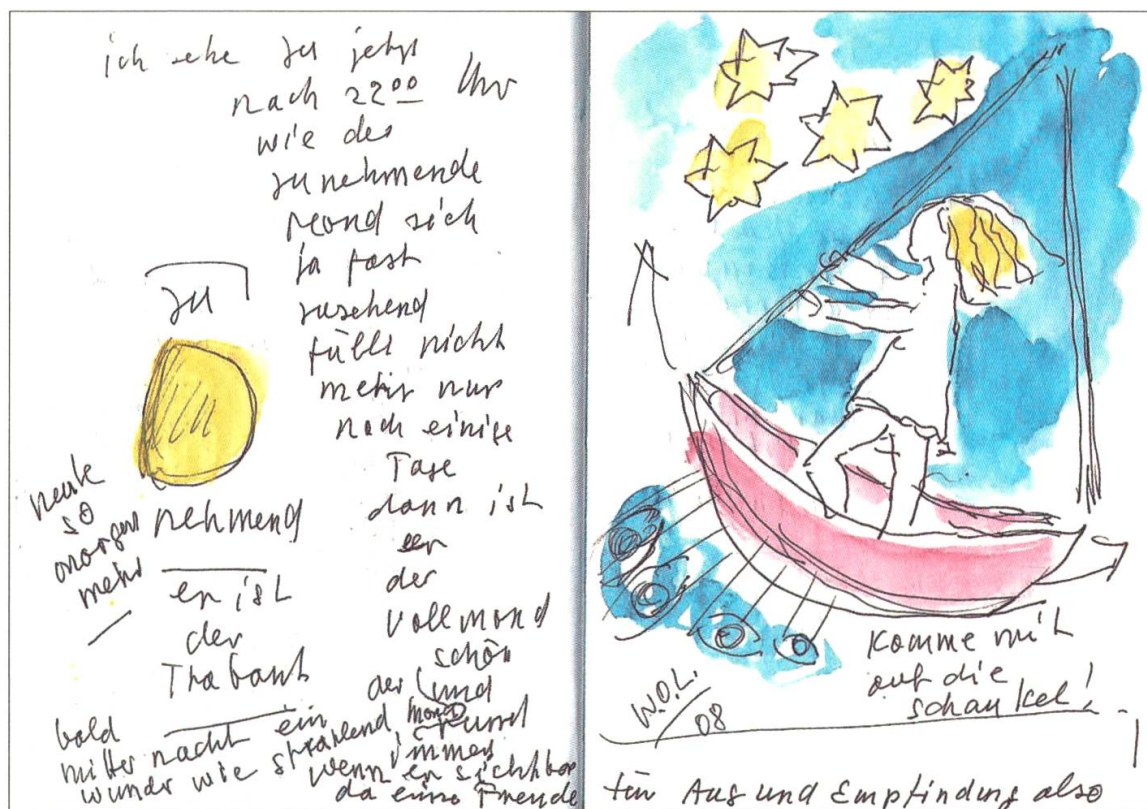 ich sehe zu jetzt
nach 22⁰⁰ Uhr
wie der
zunehmende
Mond sich
ja fast
zusehend
füllt nicht
mehr nur
noch einige
Tage
dann ist
er
der
Vollmond
schön
und
rund
immer
wenn er sichtbar
da eine Freude
zu
nehmend
heute
so
morgen
mehr
er ist
der
Trabant
bald
mitternacht ein
wunder wie strahlend
der Mond
W.O.L.
08
Komme mit
auf die
Schaukel!
für Aug und Empfindung also